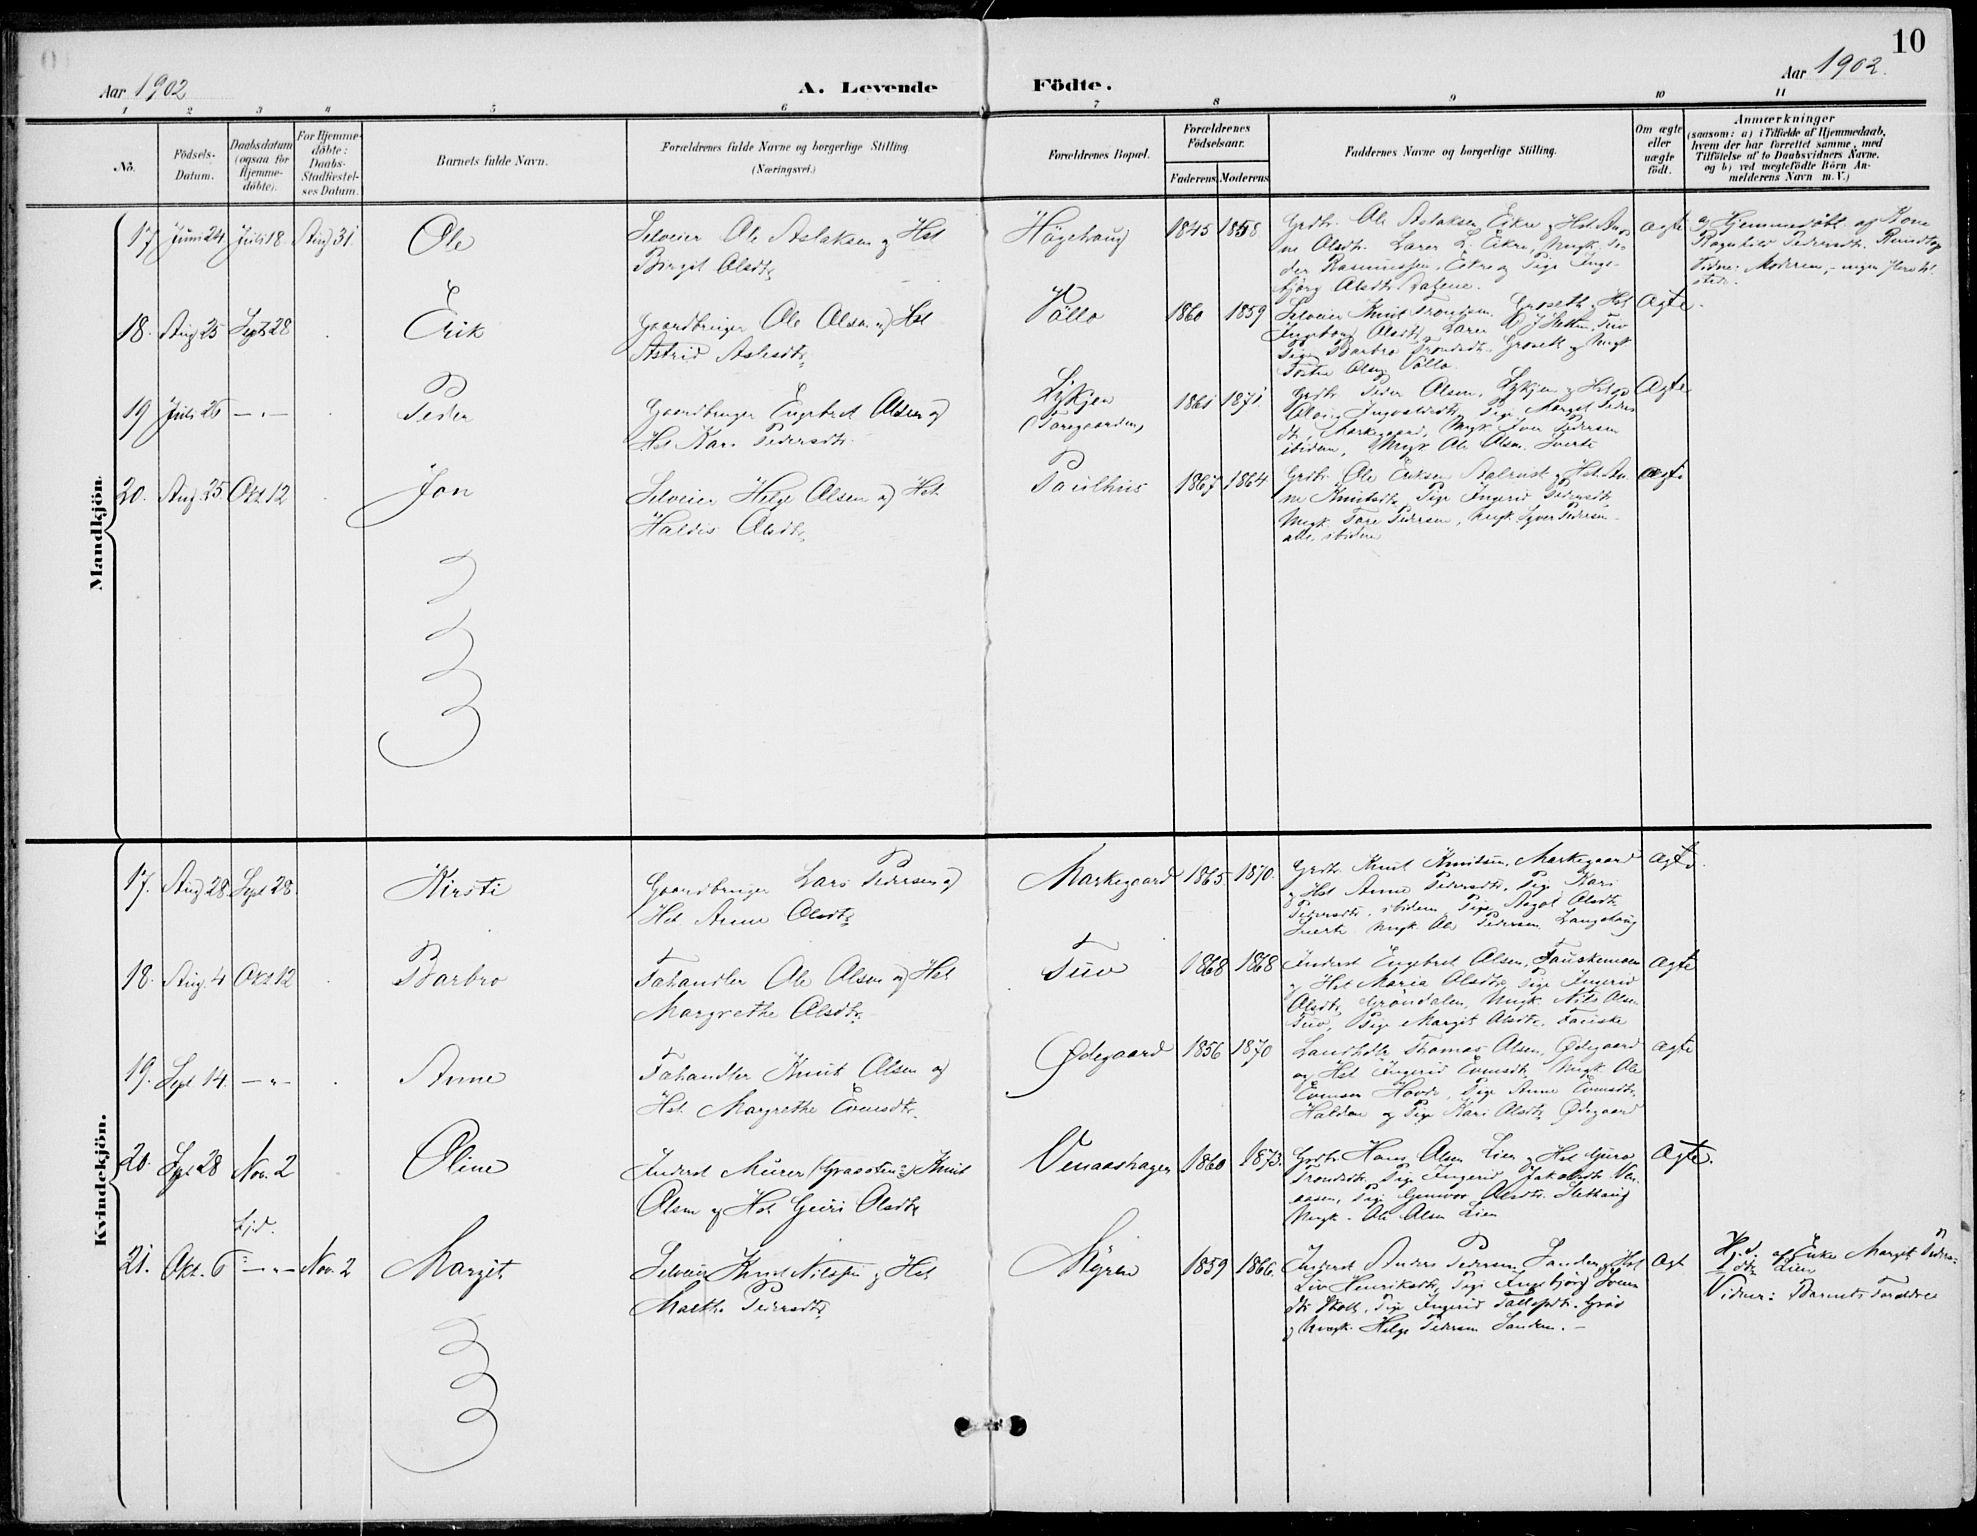 10
Aar 1902
A. Levende Födte.
Aar 1902.
1 2 3 4 5 6 7 8 9 10 11
No.
Födsels-
Datum.
Daabsdatum
(ogsaa for
Hjemme-
döbte).
For Hjemme-
döbte:
Daabs-
Stadfæstel-
ses Datum.
Barnets fulde Navn.
Forældrenes fulde Navne og borgerlige Stilling
(Næringsvei.)
Forældrenes Bopæl.
Forældrenes
Födselsaar.
Faderens Moderens
Faddernes Navne og borgerlige Stilling.
Om ægte
eller
uægte
födt.
Anmærkninger
(saasom: a) i Tilfælde af Hjemmedaab,
hvem der har forrettet samme, med
Tilföielse af to Daabsvidners Navne,
og b) ved uægtefödte Börn An-
melderens Navn m. V.)
Mandkjön.
17 Juni 24 Juli 18 Aug 31.
Ole
Selveier Ole Aslaksen og Hst
Birgit Olsdtr
Högehaug
1845 1858
Grdbr. Ole Aslaksen Eikre og Hst. An-
ne Olsdtr. Lærer L. Eikre, Ungk. Pe-
der Rasmussen, Eikre og Pige Inge-
björg Olsdtr
ægte
a) Hjemmedöbt af Kone
Ragnhild Pedersdtr.
Vidne: Moderen, - ingen flere til-
stede.
18. Aug 25 Sept 28
Erik
Gaardbruger Ole Olsen og Hst
Astrid Aslesdtr
Völlo
1860 1859
Selveier Knut Trondsen, Groseth, Hst
Ingeborg Olsdtr, Lærer
Pige Barbro Trondsdtr. Groseth og Ungk
Olsen Völlo.
Ægte.
19 Juli 26 — „ —
Peder
Gaardbruger Engebret Olsen og
Hst. Kari Pedersdtr.
Lykkjen
1861 1871.
Grdbr. Peder Olsen, Lykkjen og Hst
Ingvaldsdtr, Pige Margit Peders
dtr, Markegaard, Ungk Iver Pedersen
ibidem, Ungk Ole Olsen
Ægte
20. Aug 25 Okt 12
Jon
Selveier Helge Olsen og Hst.
Haldis Olsdtr
Paulhus
1867 1864
Grdbr Ole Eriksen og Hst. An-
ne Knutsdtr, Pige Ingerid Pedersdtr
Ungk. Tore Pedersen, Ungk Syver Pedersen
alle ibidem
ægte
Kvindekjön.
17. Aug 28 Sept 28.
Kirsti
Gaardbruger Lars Pedersen og
Hst. Anne Olsdtr
Markegaard
1865 1870.
Grdbr. Knut Knutsen, Markegaard
og Hst Anne Pedersdtr, Pige Kari
Pedersdtr. ibidem, Pige Olsdtr
Ungk. Ole Pedersen, Langehaug
Ægte.
18. Aug. 4 Okt 12
Barbro
Fæhandler Ole Olsen og Hst
Margrethe Olsdtr
Tuv
1868 1868
Inderst Engebret Olsen, Fauskemoen
og Hst Maria Olsdtr, Pige Ingerid
Olsdtr, Gröndalen, Ungk. Nils Olsen
Tuv, Pige Margit Olsdtr. Fauske
Ægte
19. Sept 14. — „ —
Anne
Fæhandler Knut Olsen og
Hst. Margrethe Evensdtr.
Ødegaard
1856 1870
Landhdlr Thomas Olsen, Ødegaard
og Hst Ingerid Evensdtr, Ungk Ole
Evensen Hovde, Pige Anne Evensdtr,
og Pige Kari Olsdtr Ødegaard
Ægte
20. Sept 28 Nov. 2
Oline
Inderst Murer (Graasten) Knut
Olsen og Hst Guri Olsdtr
Venaashagen
1860 1873.
Grdbr Hans Olsen Lien og Hst Guro
Trondsdtr. Pige Ingerid Jakobsdtr Ven-
aasen, Pige Gunvor Olsdtr. Slethaug
Ungk. Ole Olsen Lien
Ægte.
Hjd.
21. Okt. 6 — „ — Nov. 2
Margit
Selveier Knut Nilssen og Hst
Marthe Pedersdtr
Myren
1859 1866.
Inderst Anders Pedersen, Sanden, Hst
Liv Henriksdtr, Pige Ingebjörg Svens
dtr, Pige Ingerid
og Ungk. Helge Pedersen Sanden. —
Ægt
Hj.d. af Enke Margit Peders-
dtr Lien
Vidner: Barnets Forældre